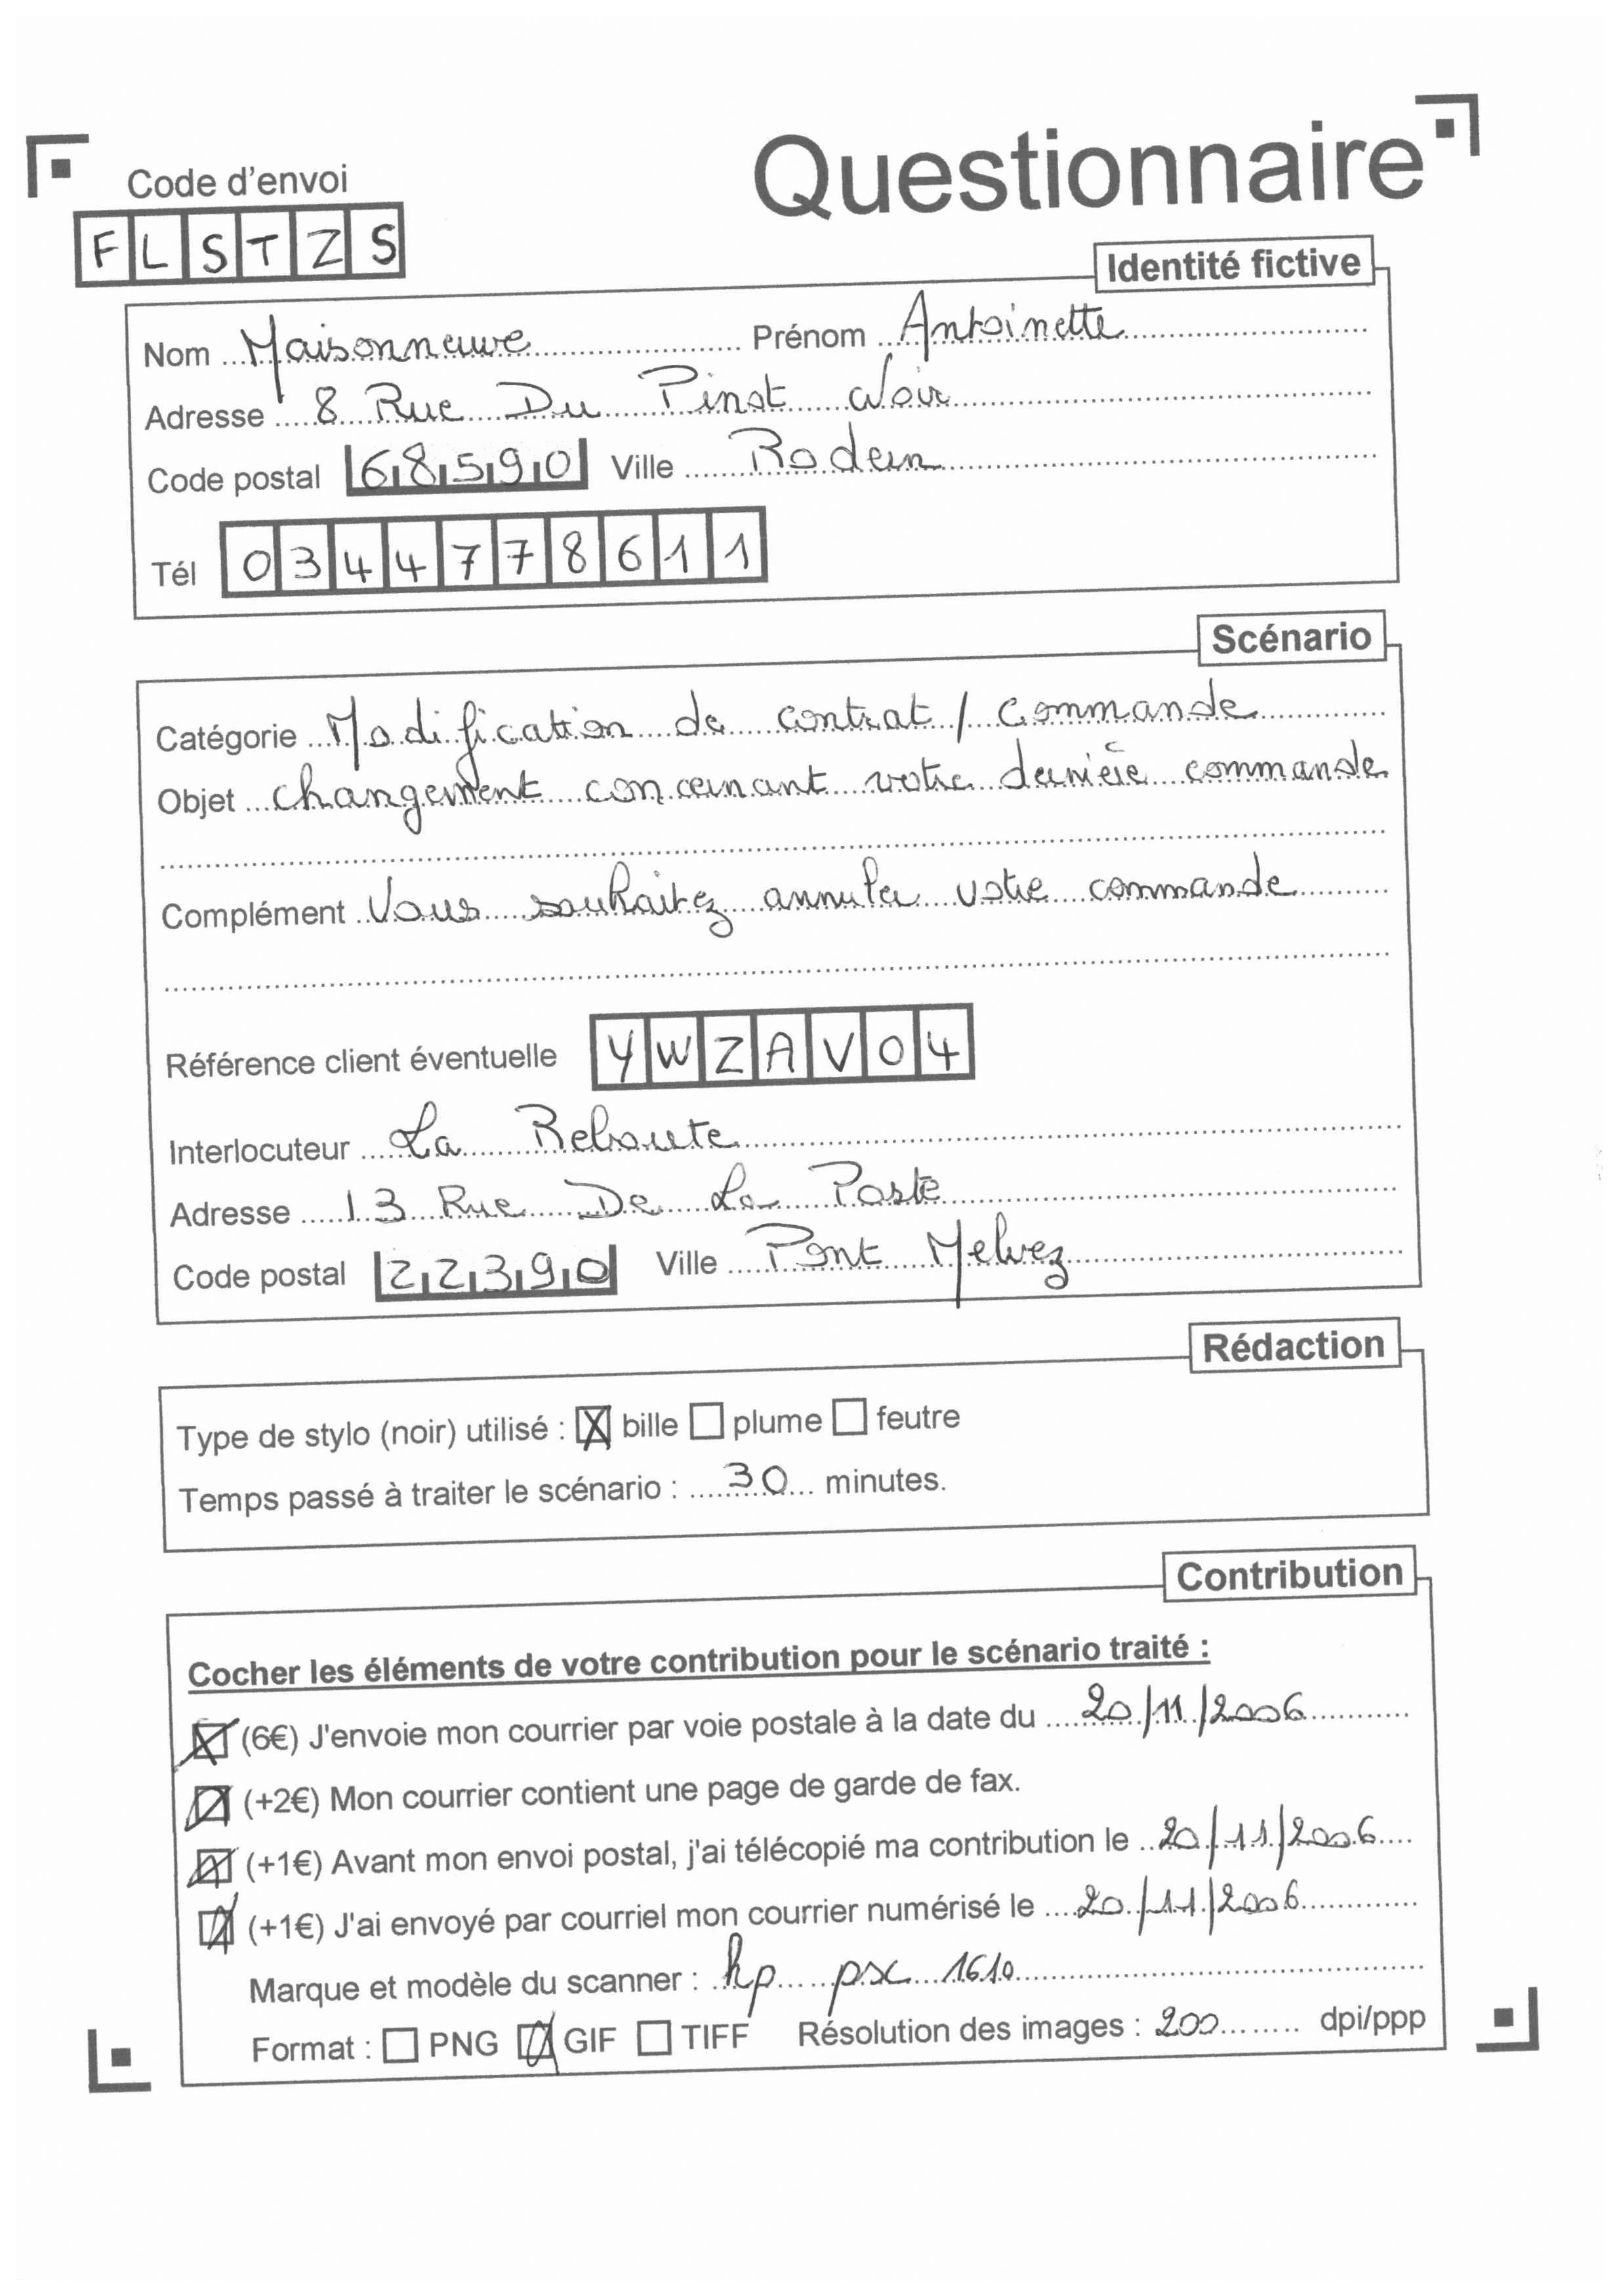 Questionnaire
Code d'envoi
FLSTZS
Identité fictive
Nom Maisonneuve Prénom Antoinette
Adresse 8 Rue Du Pinot Noir
Code postal 68590 Ville Rodern
Tél 0344778611
Scénario
Catégorie Modification de contrat / commande
Objet changement concernant votre dernière commande
Complément Vous souhaitez annuler votre commande
Référence client éventuelle YWZAV04
Interlocuteur La Reboute
Adresse 13 Rue De La Poste
Code postal 22390 Ville Pont Melvez
Rédaction
Type de stylo (noir) utilisé : ☒ bille ☐ plume ☐ feutre
Temps passé à traiter le scénario : 30 minutes.
Contribution
Cocher les éléments de votre contribution pour le scénario traité :
☒ (6€) J'envoie mon courrier par voie postale à la date du 20/11/2006
☒ (+2€) Mon courrier contient une page de garde de fax.
☒ (+1€) Avant mon envoi postal, j'ai télécopié ma contribution le 20/11/2006
☒ (+1€) J'ai envoyé par courriel mon courrier numérisé le 20/11/2006
Marque et modèle du scanner : hp psc 1610
Format : ☐ PNG ☒ GIF ☐ TIFF Résolution des images : 200 dpi/ppp